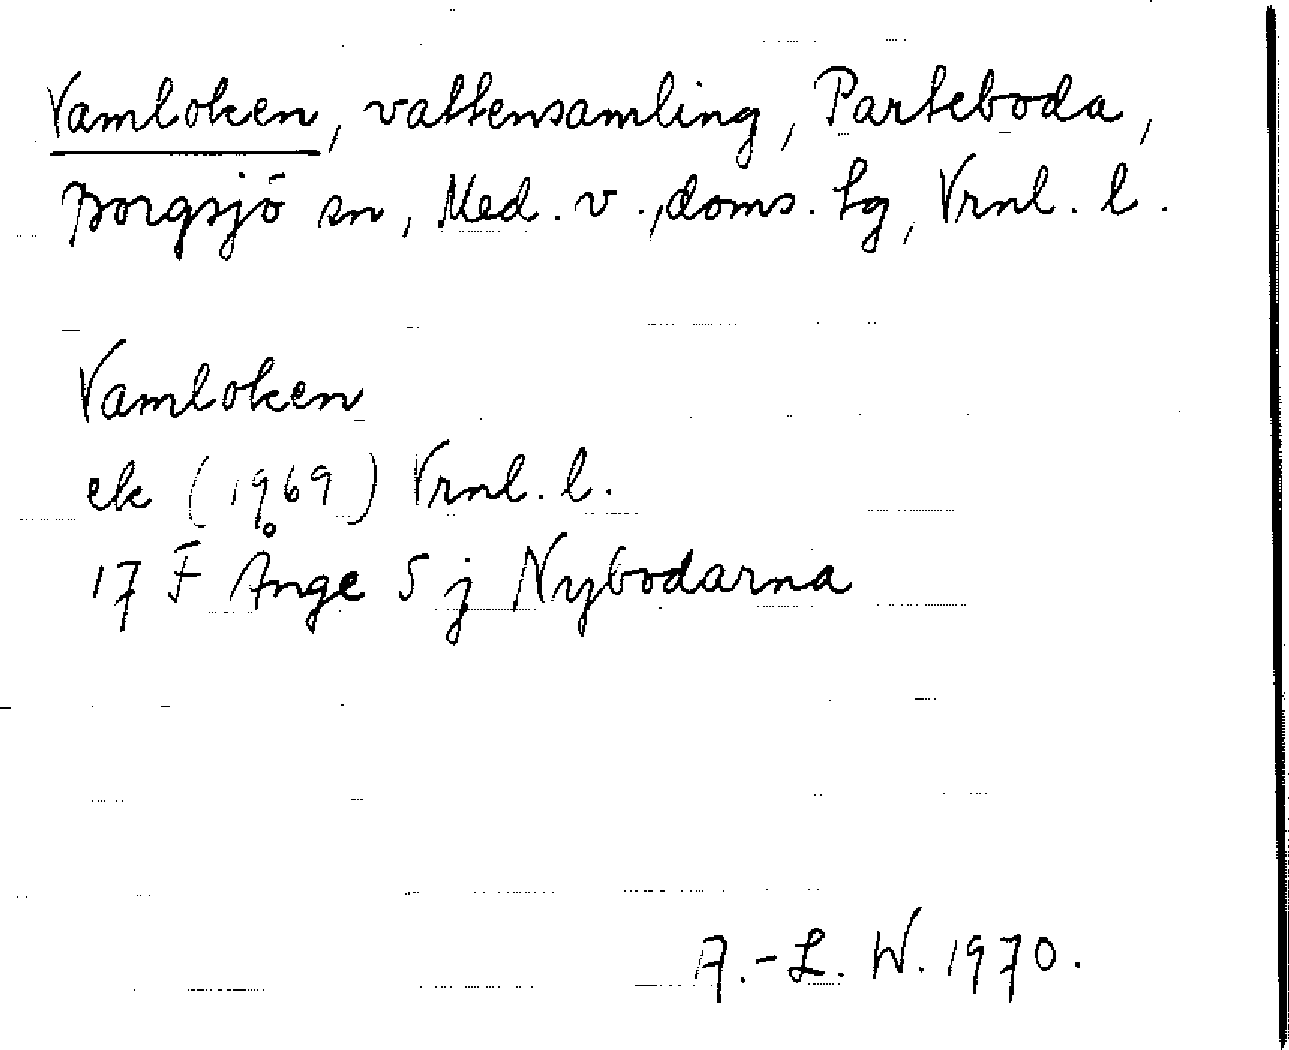 Vamloken, vattensamling, Parteboda,
Borgsjö sn, Med. v., doms. hg, Vrnl. l.
Vamloken
ek (1969) Vrnl. l.
17 F Ånge 5 j Nybodarna
A.-L. W. 1970.